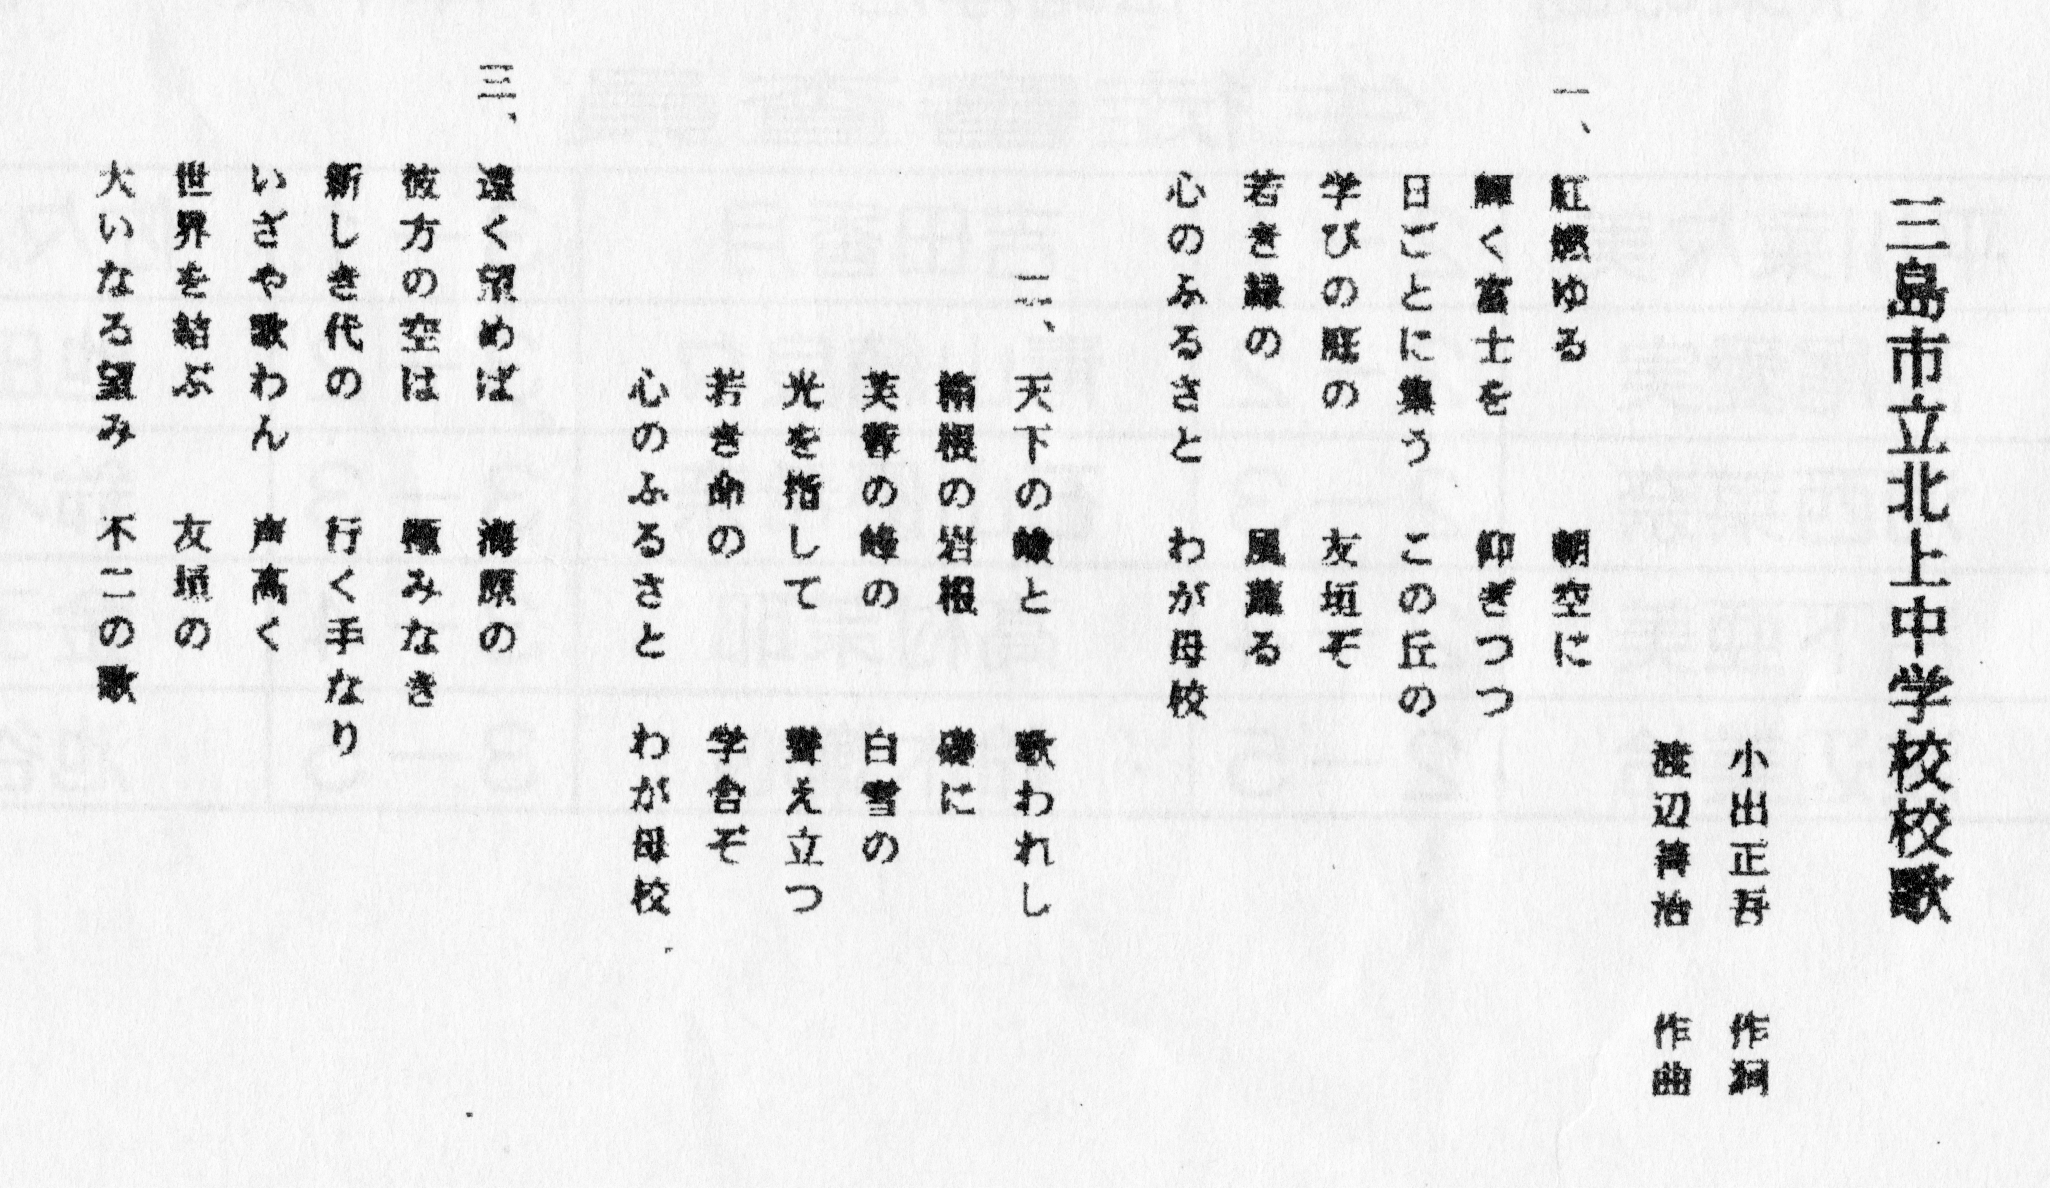 三島市立北上中学校校歌
小出正吾　作詞
渡辺　治　作曲
一、紅燃ゆる　朝空に
輝く富士を　仰ぎつつ
日ごとに集う　この丘の
学びの庭の　友垣ぞ
若き緑の　風薫る
心のふるさと　わが母校
二、天下の嶮と　歌われし
箱根の岩根　礎に
芙蓉の峰の　白雪の
光を指して　聳え立つ
若き命の　学舎ぞ
心のふるさと　わが母校
三、遠く望めば　海原の
彼方の空は　極みなき
新しき代の　行く手なり
いざや歌わん　声高く
世界を結ぶ　友垣の
大いなる望み　不二の歌